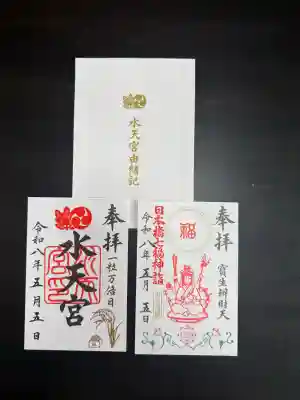 水天宮由緒記
奉拝
一粒万倍日
水天宮
令和八年五月五日
奉拝
寳生辨財天
福
日本橋七福神詣
令和八年五月五日